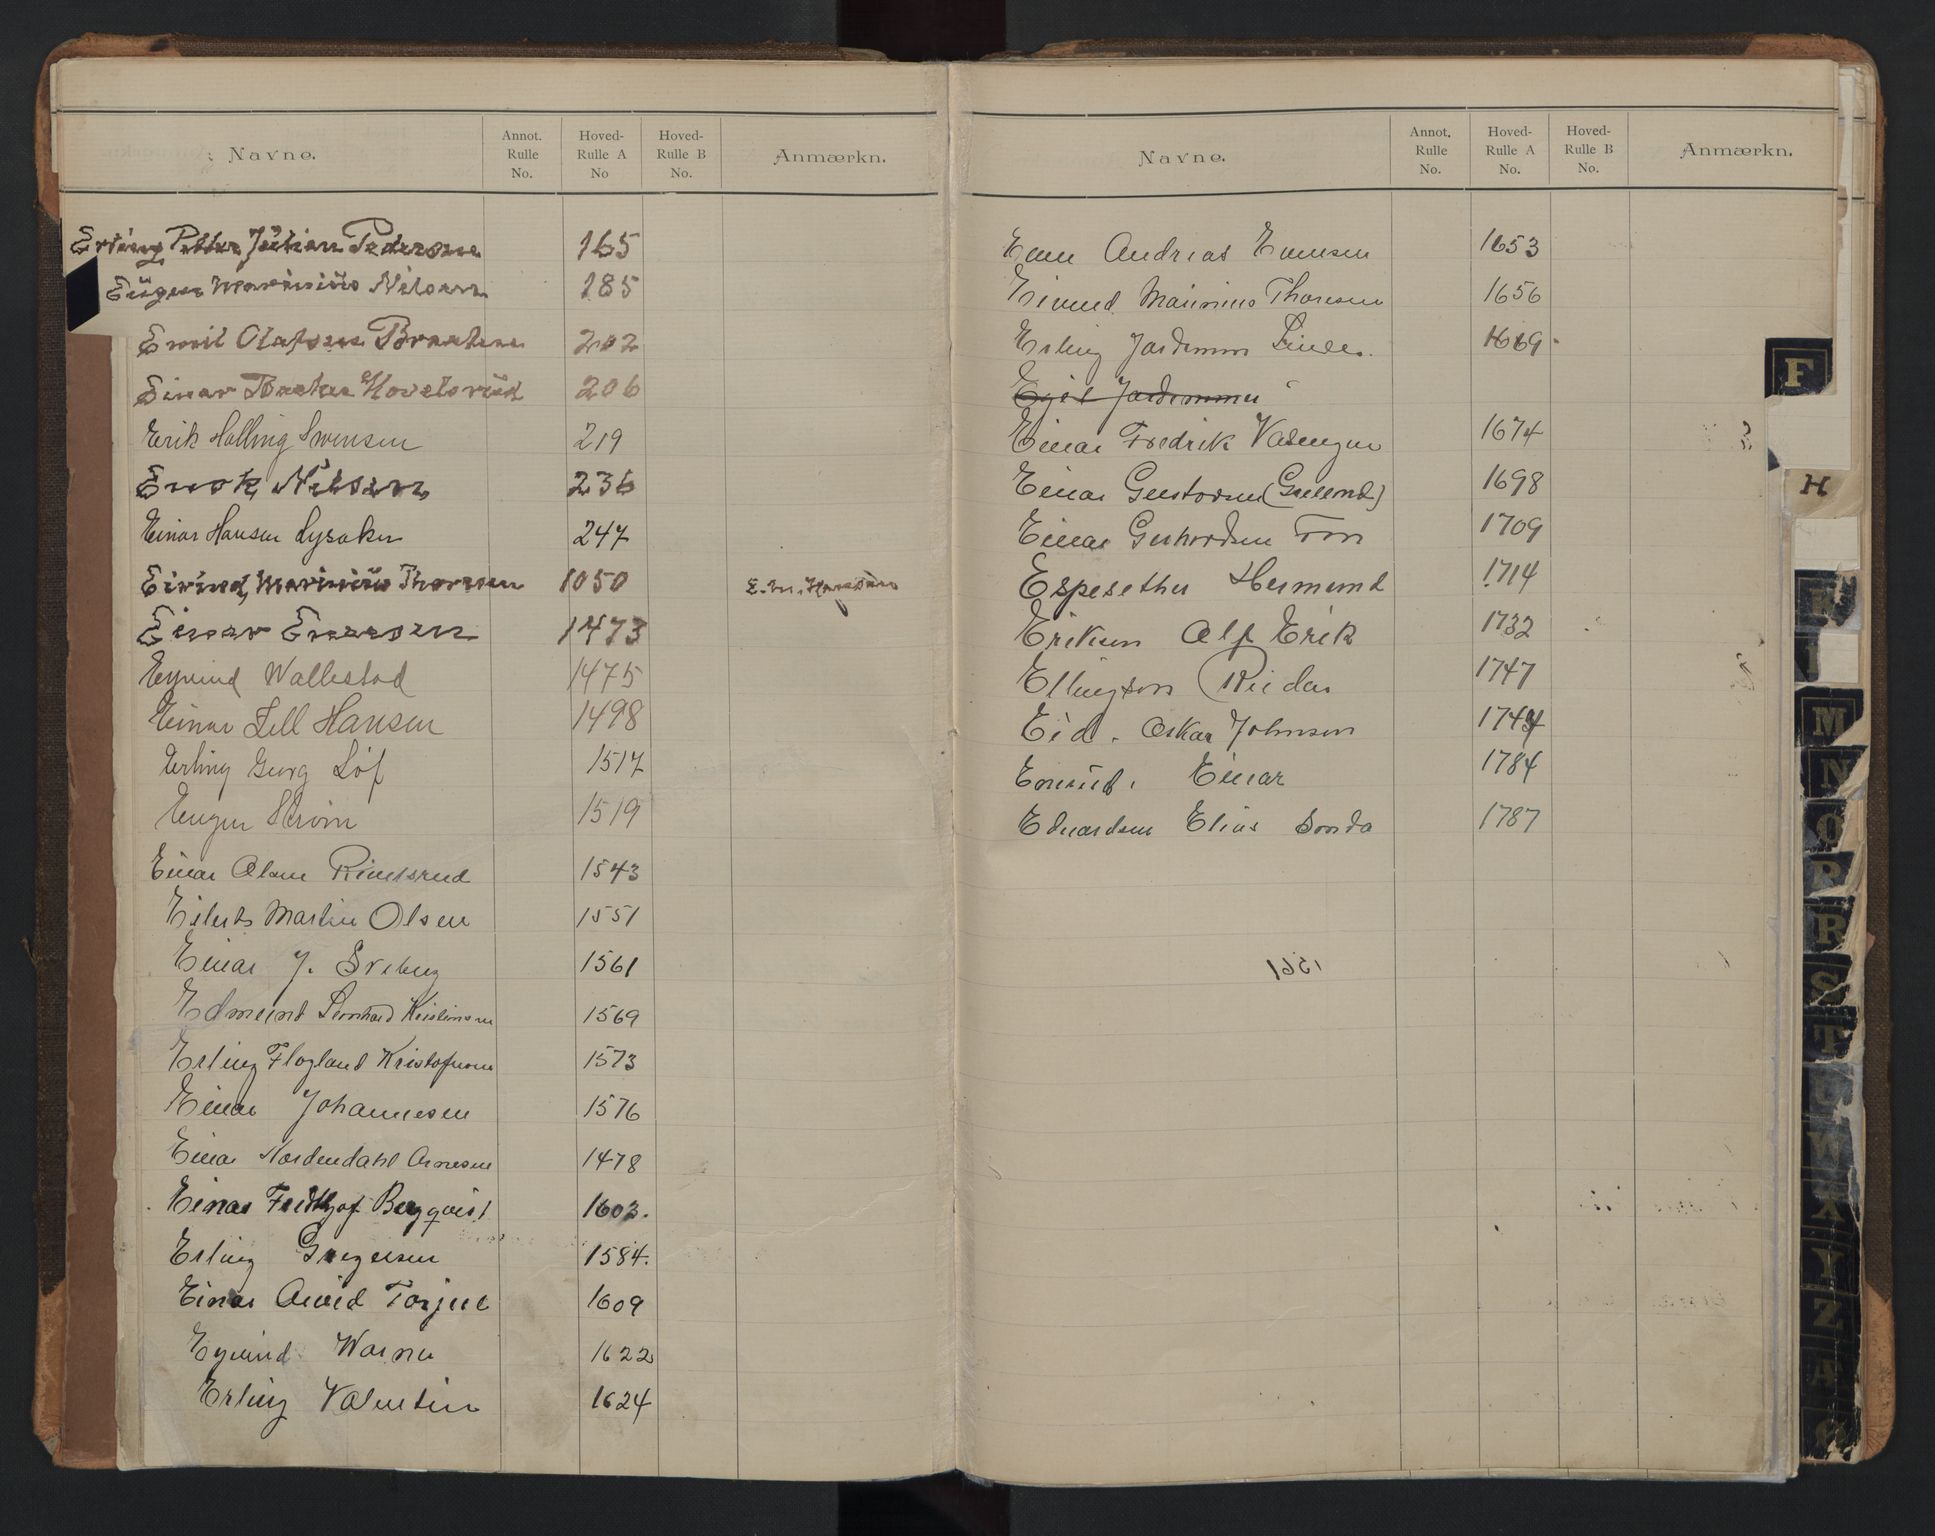 Navne.
Annot. Rulle No.
Hoved-Rulle A No
Hoved-Rulle B No.
Anmærkn.
Erling Petter Julian Pedersen 165
Eugen Marinius Nilsen 185
Emil Olafsen Braaten 202
Einar Hovelsrud 206
Erik Halling Svensen 219
Enok Nilsen 236
Einar Hansen Lysaker 247
Eivind, Marinius Thoresen 1050 E. M. Hanssen
Einar Enersen 1473
Eyvind Wallestad 1475
Einar Lell Hansen 1498
Erling Georg Löf 1517
Eugen Strøm 1519
Einar Olsen Rimtsrud 1543
Eilerts Martin Olsen 1551
Einar J. Sreberg 1561
Edmund Lernhard Kristiansen 1569
Erling Flogland Kristofersen 1573
Einar Johannesen 1576
Einar Nordendahl Arnesen 1478
Einar Fridthjof Bergqvist 1603.
Erling Gregersen 1584.
Einar Arvid Torjul 1609
Eyvind Warner 1622
Erling Valentin 1624
Navne.
Annot. Rulle No.
Hoved-Rulle A No.
Hoved-Rulle B No.
Anmærkn.
Even Andreas Evensen 1653
Eivind Marinius Thoresen 1656
Erling Jardemar Linde. 1669
Egil Jardemar
Einar Fredrik Valengen 1674
Einar Gustavsen (Grelland) 1698
Einar Gerhardsen Ton 1709
Espesether Hermund 1714
Eriksen Alf Erik 1732
Ellingson Reidar 1747
Eid. Oskar Johnsen 1744
Einar 1784
Edvardsen Elias Sonda 1787
F
H
K
L
M
N
O
P
R
S
T
U
W
X
Y
Z